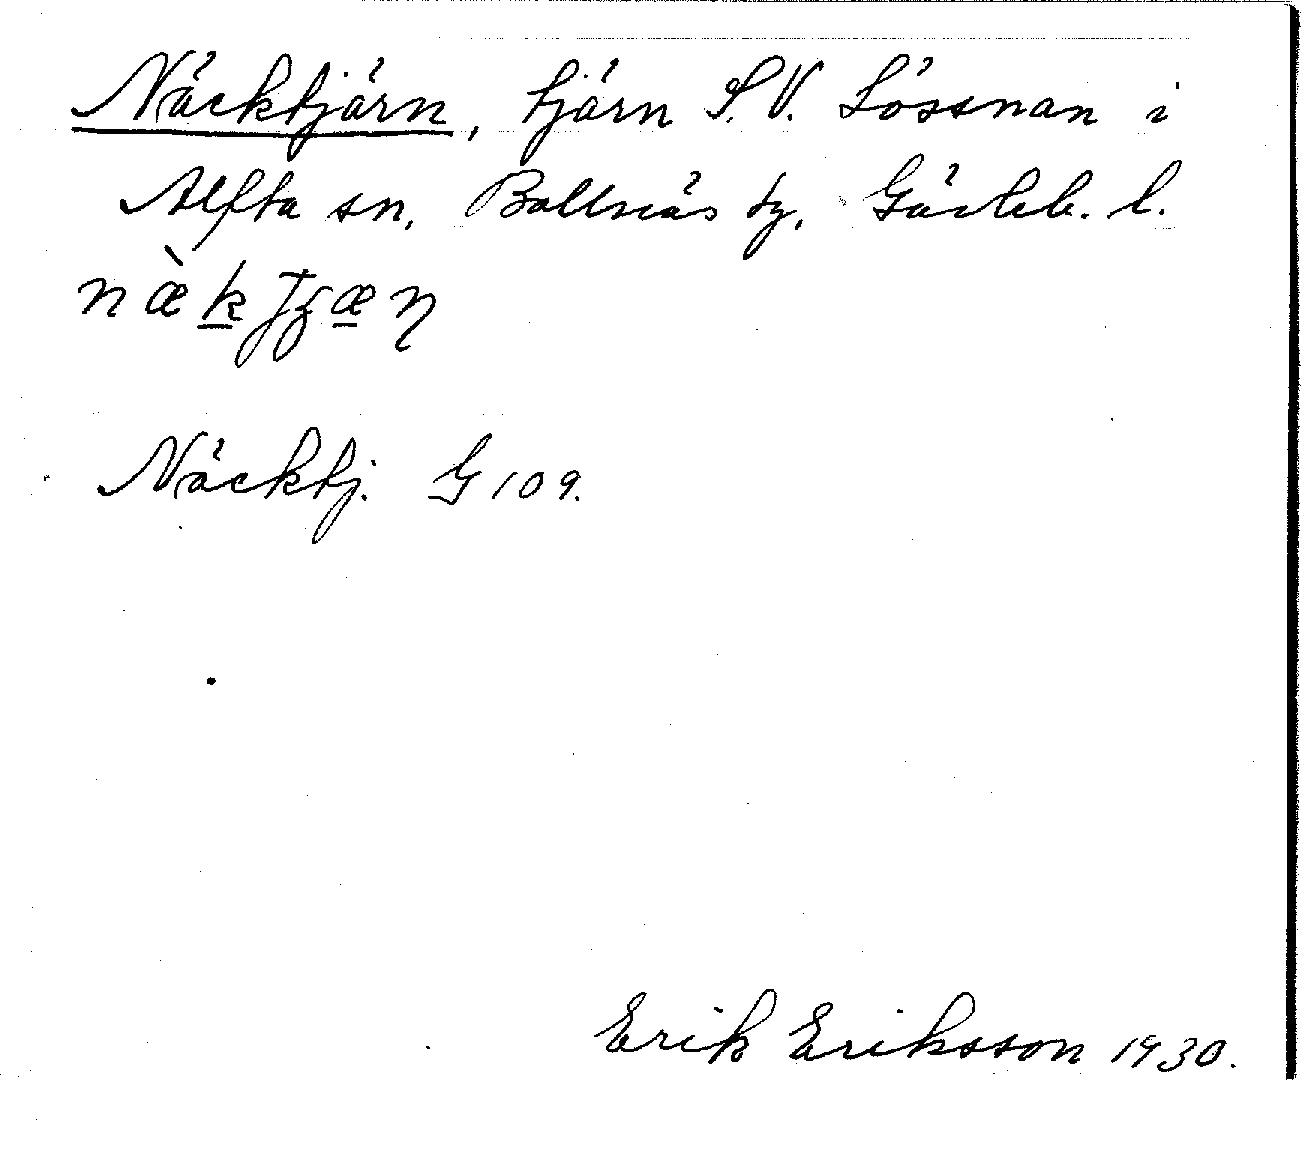 Näcktjärn, tjärn S.V. Lössnan i
Alfta sn, Bollnäs tg, Gävleb. l.
Näcktj. G 109.
Erik Eriksson 1930.